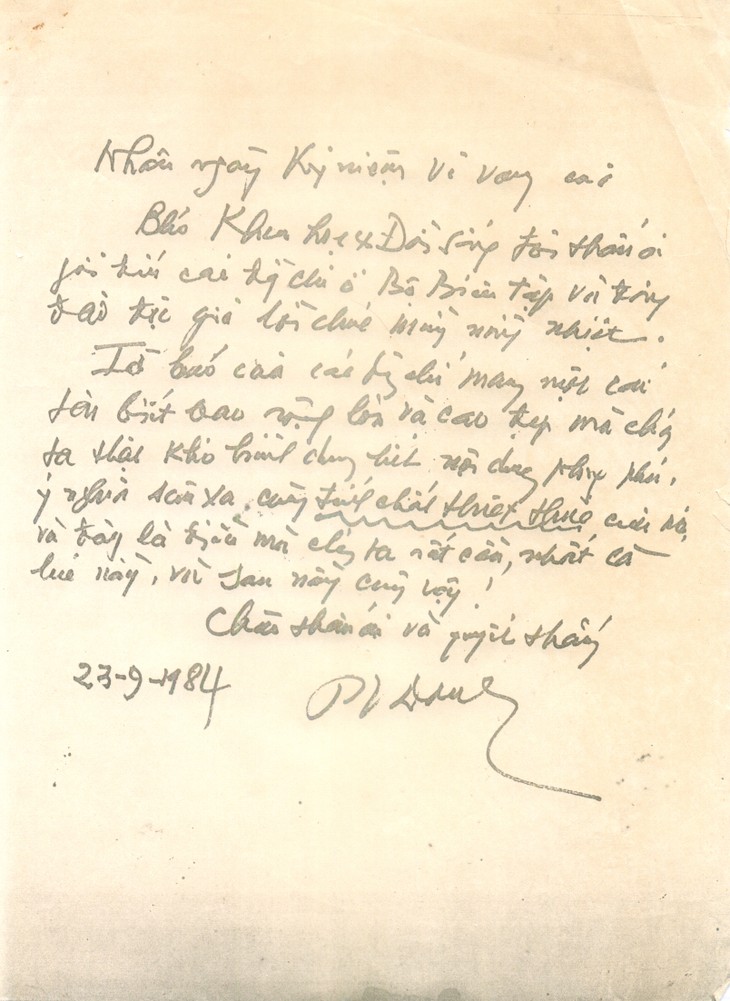 Nhân ngày Kỷ niệm vẻ vang của
Báo Khoa học & Đời sống tôi thân ái
gửi đến các đ/chí ở Bộ Biên tập và đông
đảo độc giả lời chúc mừng nồng nhiệt.
Tờ báo của các đ/chí mang một cái
tên biết bao rộng lớn và cao đẹp mà chúng
ta thật khó hình dung hết nội dung phong phú,
ý nghĩa sâu xa, cùng tính chất thiết thực của nó,
và đây là điều mà chúng ta rất cần, nhất là
lúc này, và sau này cũng vậy!
Chào thân ái và quyết thắng
23-9-1984